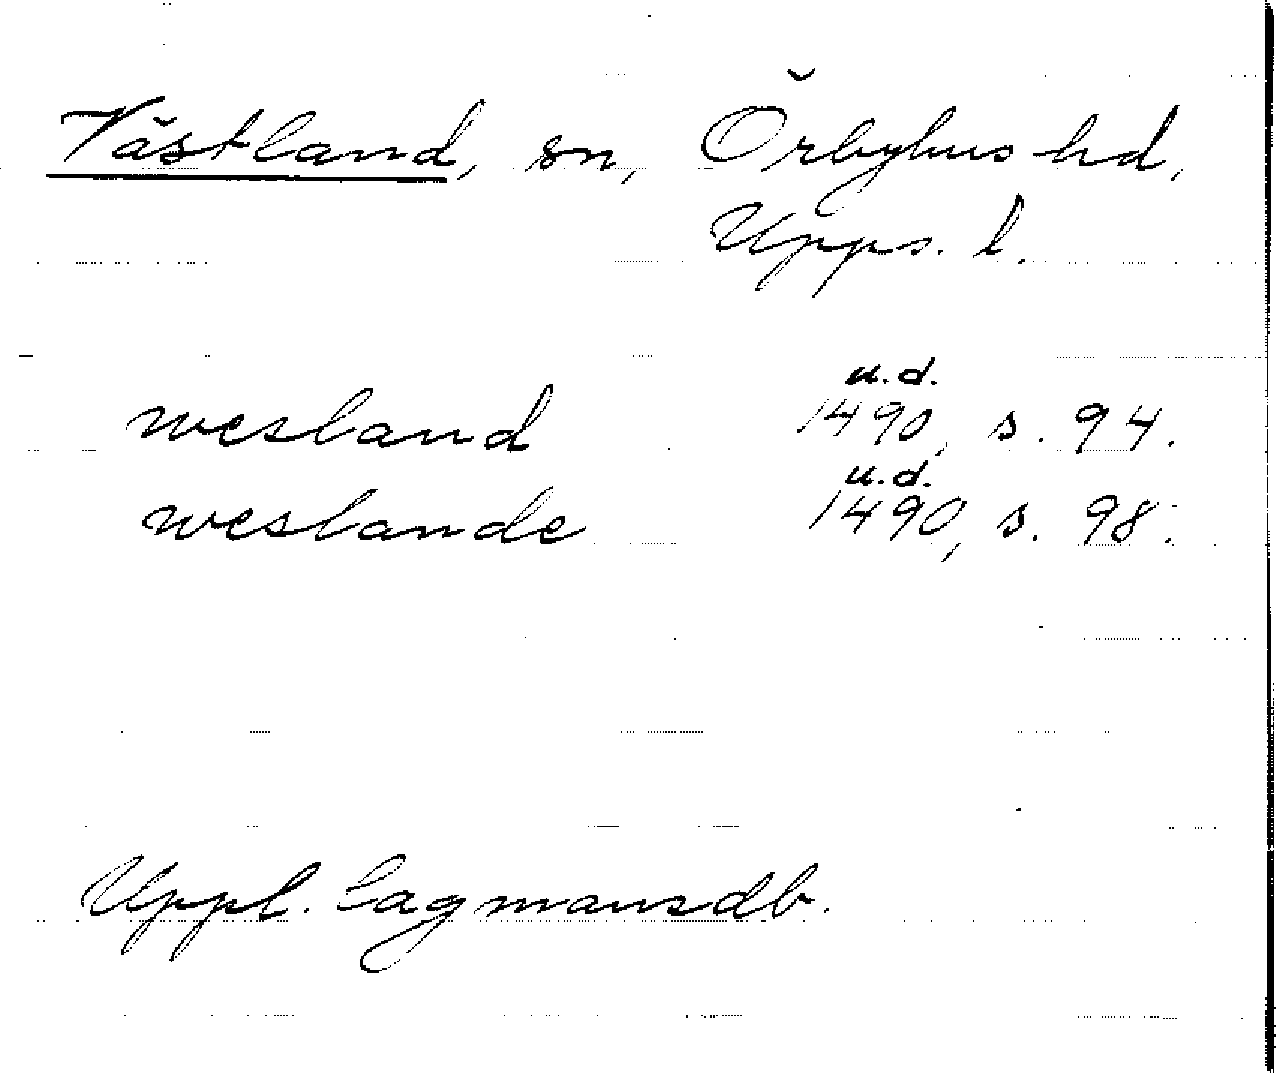 Västland, sn, Örbyhus hd,
Upps. l.
wesland u.d. 1490, s. 94.
weslande u.d. 1490, s. 98.
Uppl. lagmansdb.